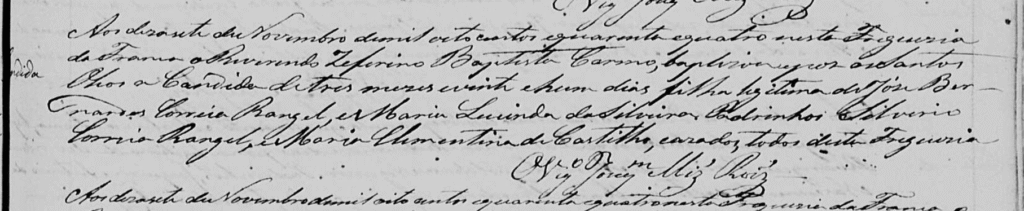 Aos dezasete de Novembro de mil oito centos e quarenta e quatro nesta Freguezia
da Franca o Reverendo Zeferino Baptista Carmo, baptizou e poz os Santos
ndida
Oleos a Candida de tres mezes e vinte e hum dias filha legitima de Józe Ber-
nardes Correia Rangel, e Maria Lucinda da Silveira Padrinhos Silverio
Correia Rangel, e Maria Clementina de Castilho, cazados, todos desta Freguezia
Vigº Joaqm Miz Roiz
Aos dezasete de Novembro de mil oito centos e quarenta e quatro nesta Freguezia da Franca o